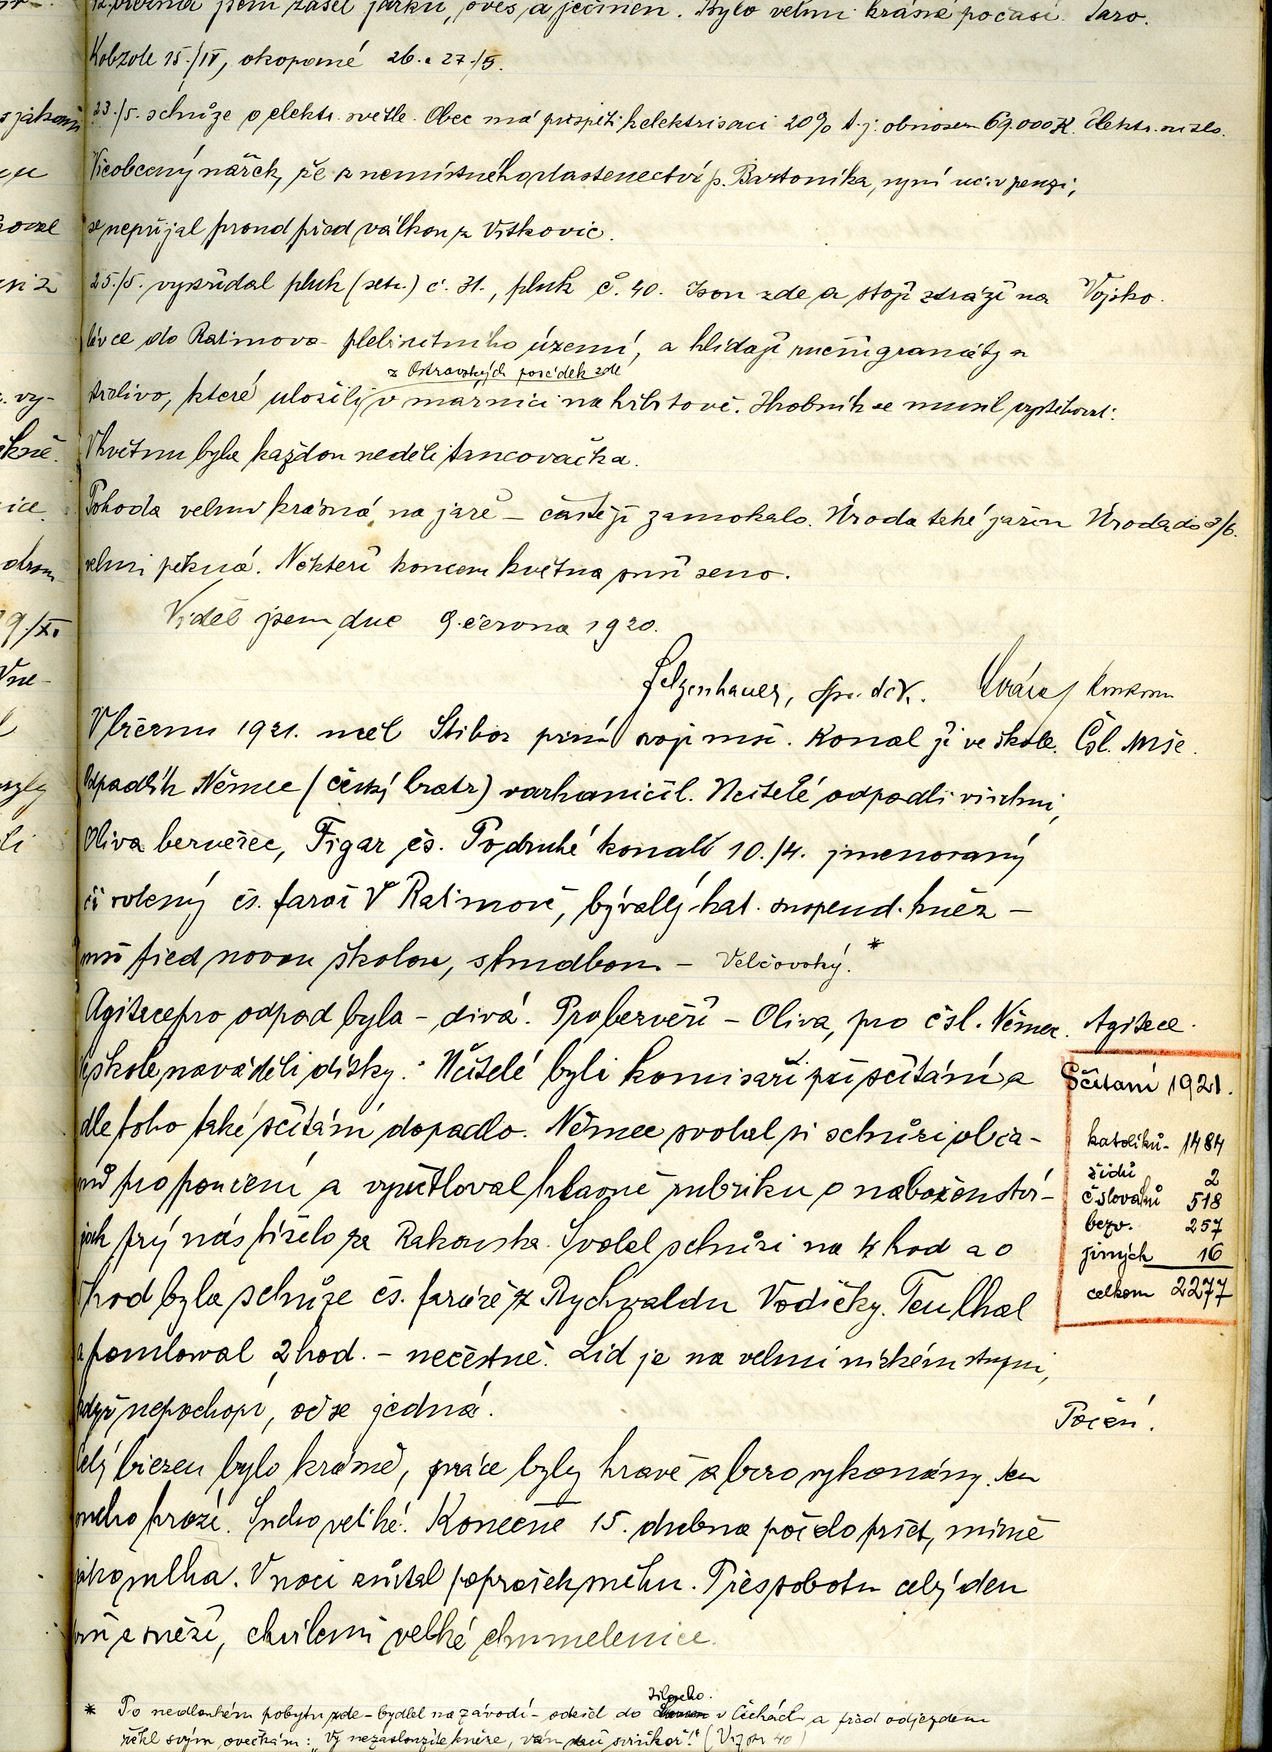 12. března jsem zasel jarku, oves a ječmen. Bylo velmi krásné počasí. Jaro.
Kobzole 15./IV, okopané 26. a 27./5.
23./5. schůze o elektr. světle. Obec má přispěti k elektrisaci 20% t.j. obnosem 69.000 K. Elektr. světlo.
Všeobecný nářek, že z nemístného vlastenectví p. Bartoníka, nyní uč. v penzi,
se nepřijal proud před válkou z Vítkovic.
25./5. vystřídal pluk (setn.) č. 31., pluk č. 40. Jsou zde a stojí stráží na Vojsko.
lávce do Ratimova - plebiscitního území, a hlídají ruční granáty a
z Ostravských posádek zde
střelivo, které uložili v márnici na hřbitově. Hrobník se musil vystěhovat.
V květnu byla každou neděli tancovačka.
Pohoda velmi krásná na jaře - častěji zamokalo. Úroda také jařin Úroda do 9/6.
velmi pěkná. Někteří koncem května suší seno.
Viděl jsem dne 9. června 1920.
Felzenhauer, děk.
V březnu 1921. měl Stibor první svoji mši. Konal ji ve škole. Čsl. Mše.
Odpadlík Němec (český bratr) varhaničil. Učitelé odpadli všichni,
Oliva bezvěrec, Figar čs. Podruhé konal 10./4. jmenovaný
či volený čs. farář v Ratimově, bývalý kat. suspend. kněz -
mši před novou školou, s hudbou - Velčovský.*
Agitace pro odpad byla - divá. Pro bezvěří - Oliva, pro čsl. Němec. Agitace.
Ve škole naváděli dítky. Učitelé byli komisaři při sčítání a
dle toho také sčítání dopadlo. Němec svolal si schůzi obča-
nů pro poučení a vysvětloval hlavně rubriku o náboženství -
jak prý nás tížilo za Rakouska. Svolal schůzi na 4 hod a o
hod byla schůze čs. faráře z Rychvaldu Vodičky. Ten lhal
a pomlouval 2 hod. - nečestně. Lid je na velmi nízkém stupni,
když nepochopí, oč se jedná.
Sčítání 1921.
katolíků - 1484
židů 2
čslováků 518
bezv. 257
jiných 16
celkem 2277
Počasí.
Celý březen bylo krásně, práce byly hravě a brzo vykonány. Jen
mnoho mrazí. Sucho veliké. Konečně 15. dubna počalo pršet, mírně
jako mlha. V noci zůstal poprašek sněhu. Přes sobotu celý den
prší a sněží, chvílemi velké chumelenice.
* Po nedlouhém pobytu zde - bydlel na závodí - odešel do v Čechách a před odjezdem
řekl svým ovečkám: „Vy nezasloužíte kněze, vám stačí sviňkař!" (Viz str 40)